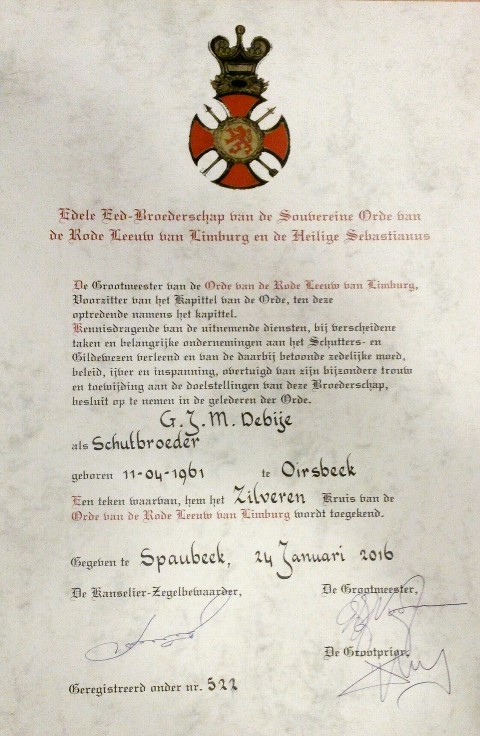 Edele Eed-Broederschap van de Souvereine Orde van
de Rode Leeuw van Limburg en de Heilige Sebastianus
De Grootmeester van de Orde van de Rode Leeuw van Limburg,
Voorzitter van het Kapittel van de Orde, ten deze
optredende namens het kapittel.
Kennisdragende van de uitnemende diensten, bij verscheidene
taken en belangrijke ondernemingen aan het Schutters- en
Gildewezen verleend en van de daarbij betoonde zedelijke moed,
beleid, ijver en inspanning, overtuigd van zijn bijzondere trouw
en toewijding aan de doelstellingen van deze Broederschap,
besluit op te nemen in de gelederen der Orde.
G.J.M. Debije
als Schutbroeder
geboren 11-04-1961 te Oirsbeek
Een teken waarvan, hem het Zilveren Kruis van de
Orde van de Rode Leeuw van Limburg wordt toegekend.
Gegeven te Spaubeek, 24 Januari 2016
De Kanselier-Zegelbewaarder, De Grootmeester,
De Grootprior,
Geregistreerd onder nr. 522